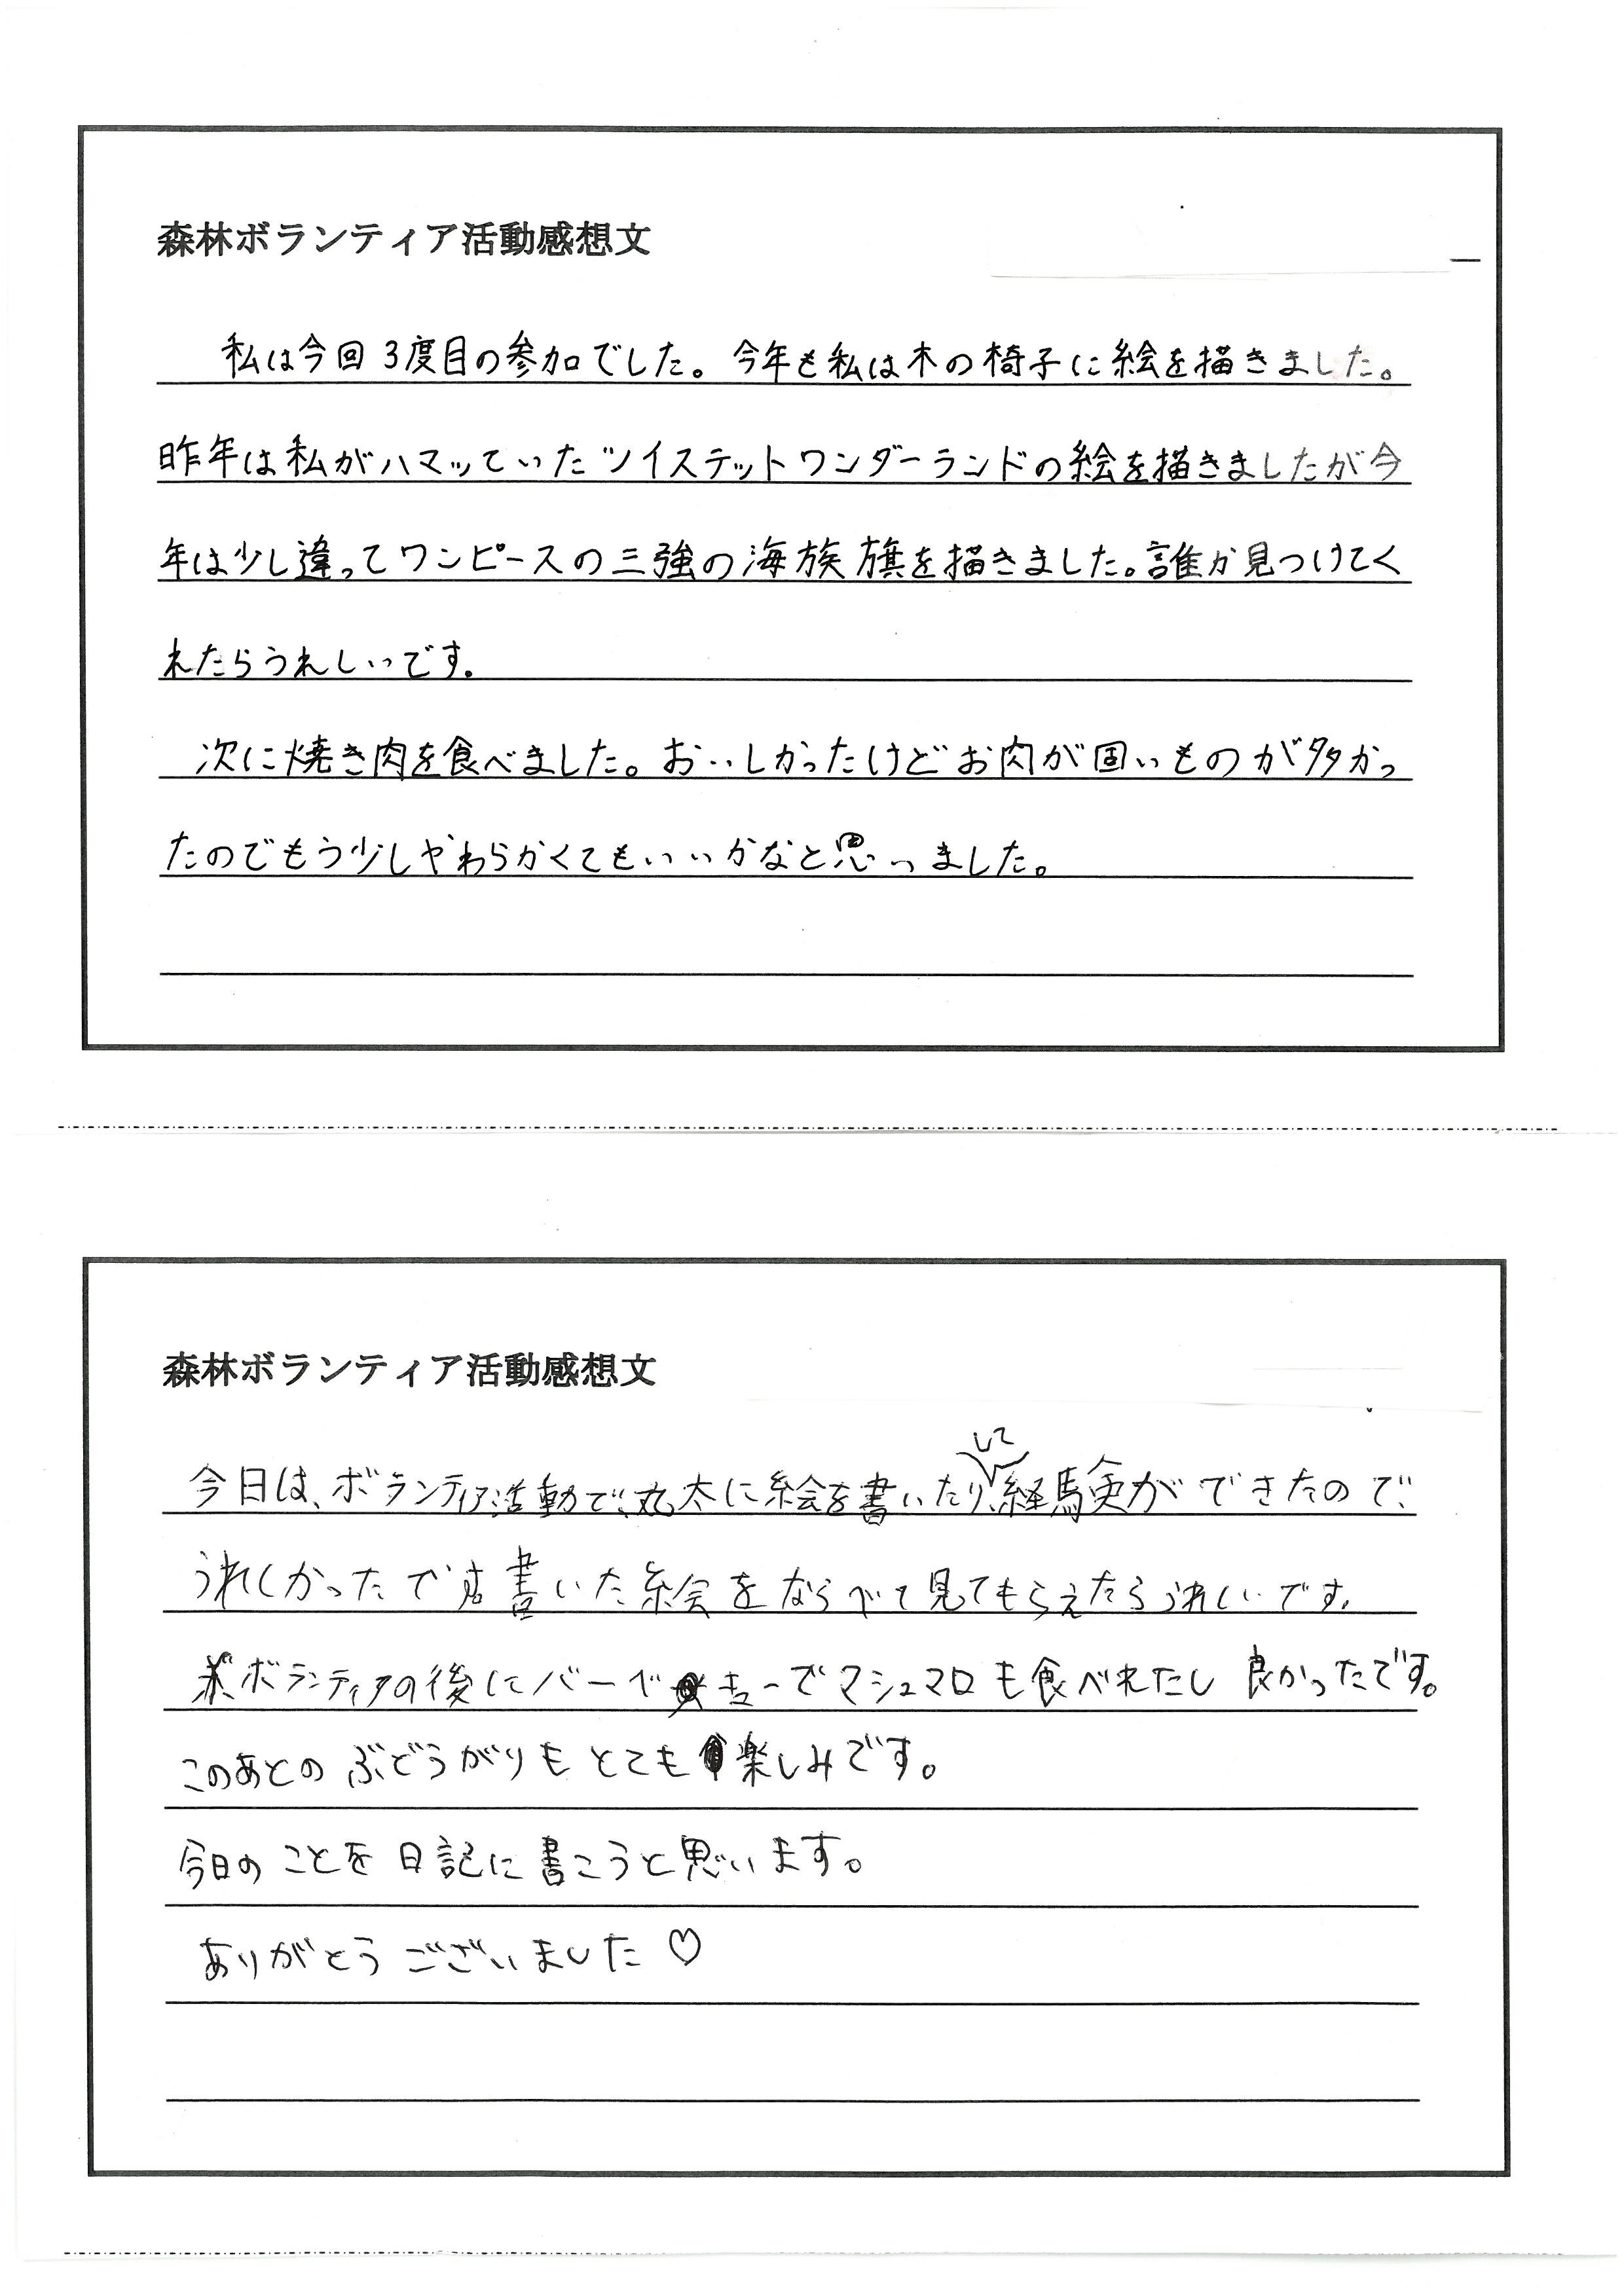 森林ボランティア活動感想文
私は今回3度目の参加でした。今年も私は木の椅子に絵を描きました。
昨年は私がハマッていたツイステットワンダーランドの絵を描きましたが今
年は少し違ってワンピースの三強の海族旗を描きました。誰か見つけてく
れたらうれしいです。
次に焼き肉を食べました。おいしかったけどお肉が固いものが多かっ
たのでもう少しやわらかくてもいいかなと思いました。
森林ボランティア活動感想文
して
今日は、ボランティア活動で、丸太に絵を書いたり、経験ができたので、
うれしかったです。書いた絵をならべて見てもらえたらうれしいです。
ボランティアの後にバーベキューでマシュマロも食べれたし良かったです。
このあとのぶどうがりもとても楽しみです。
今日のことを日記に書こうと思います。
ありがとうございました♡